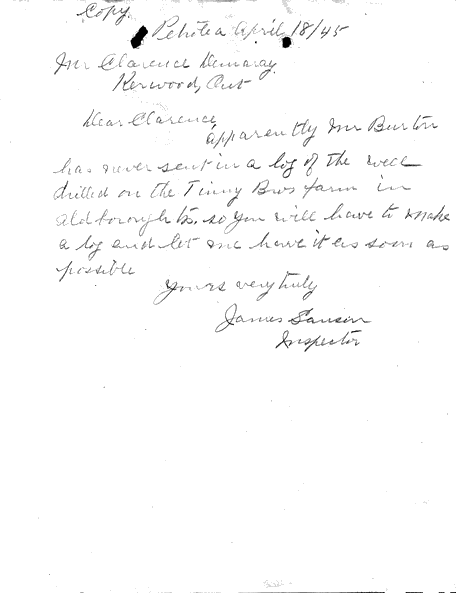 Copy
Petrolea April 18/45
Mr Clarence Demaray
Kerwood, Ont
Dear Clarence
apparently Mr Burton
has never sent in a log of the well
drilled on the Tinny Bros farm in
aldborough tp. so you will have to make
a log and let me have it as soon as
possible
yours very truly
James
Inspector